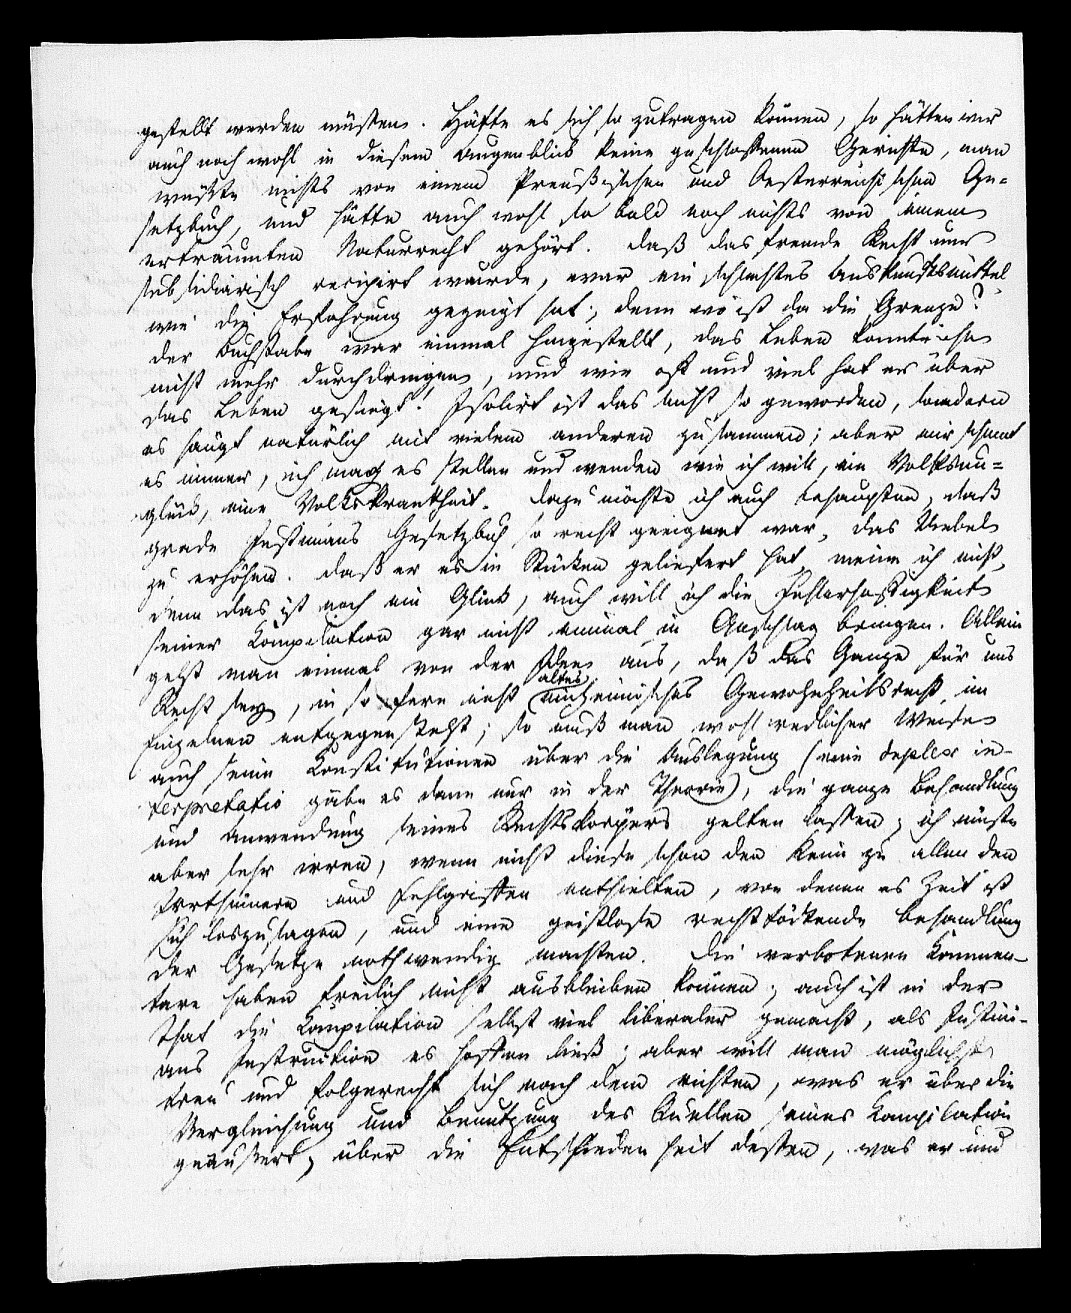 gestellt werden müssen. Hätte es sich so zutragen können, so hätten wir
auch noch wohl in diesem Augenblick keine geschlossenen Gerichte, man
wüßte nichts von einem Preußischen und Oesterreichischen Ge-
setzbuch, und hätte auch wohl so bald noch nichts von einem
erträumten Naturrecht gehört. Daß das fremde Recht nur
subsidiarisch recipirt wurde, war ein schlechtes Auskunftsmittel
wie die Erfahrung gezeigt hat; denn wo ist da die Grenze?
der Buchstabe war einmal hingestellt, das Leben konnte ihn
nicht mehr durchdringen, und wie oft und viel hat er über
das Leben gesiegt! Isolirt ist das nicht so geworden, sondern
es hängt natürlich mit vielem anderen zusammen; aber mir scheint
es immer, ich mag es stellen und wenden wie ich will, ein Volksun-
glück, eine Volkskrankheit. Dazu möchte ich auch behaupten, daß
grade Justinians Gesetzbuch so recht geeignet war, das Uebel
zu erhöhen. Daß er es in Stücken geliefert hat, meine ich nicht,
denn das ist noch ein Glück, auch will ich die Fehlerhaftigkeit
seiner Kompilation gar nicht einmal in Anschlag bringen. Allein
geht man einmal von der Idee aus, daß das Ganze für uns
Recht sey, in so fern nicht altes einheimisches Gewohnheitsrecht im
Einzelnen entgegensteht; so muß man wohl redlicher Weise
auch seine Konstitutionen über die Auslegung (eine duplex in-
terpretatio gäbe es dann nur in der Theorie), die ganze Behandlung
und Anwendung seines Rechtskörpers gelten lassen; ich müßte
aber sehr irren, wenn nicht diese schon den Keim zu allen den
Irrthümern und Fehlgriffen enthielten, von denen es Zeit ist
sich loszusagen, und eine geistlose rechttödtende Behandlung
der Gesetze nothwendig machten. Die verbotenen Kommen-
tare haben freilich nicht ausbleiben können; auch ist in der
That die Kompilation selbst viel liberaler gemacht, als Justini-
ans Instruction es hoffen ließ; aber will man möglichst
treu und folgerecht sich nach dem richten, was er über die
Vergleichung und Benutzung der Quellen seiner Kompilation
geäußert, über die Entschiedenheit dessen, was er und